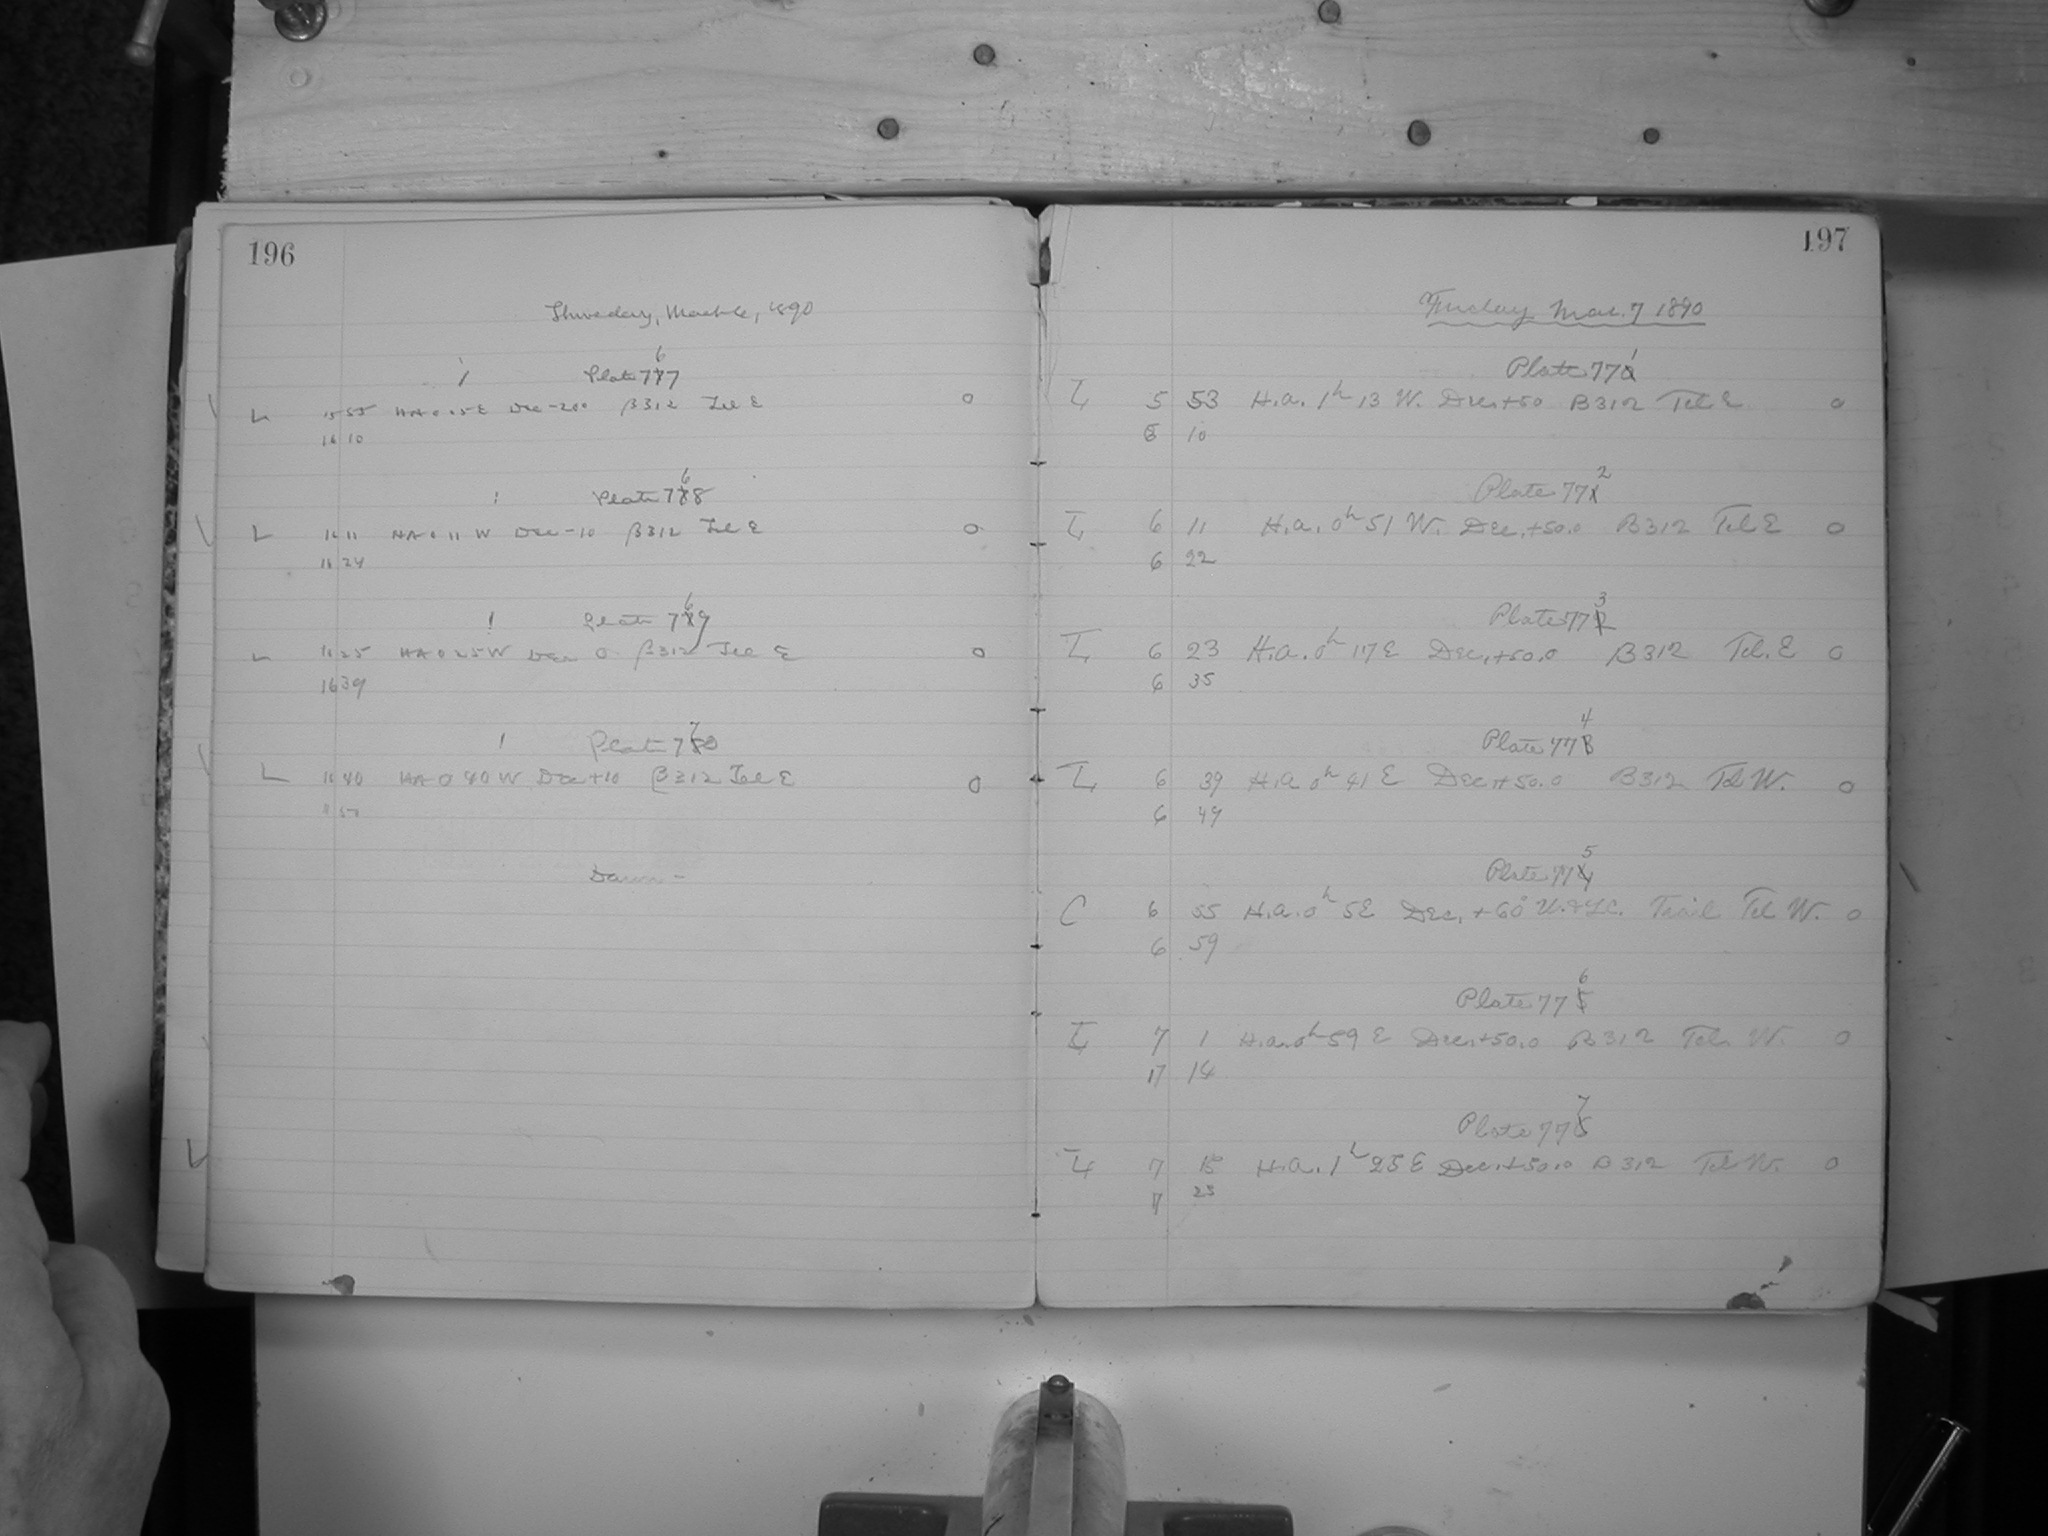 196
Thursday, March 6, 1890
Plate 767
L 15 55 HA 0 05 E Dec -20.0 B312 Tel E 0
16 10
Plate 768
L 16 11 HA 0 11 W Dec -10 B312 Tel E 0
16 24
Plate 769
L 16 25 HA 0 25 W Dec 0 B312 Tel E 0
16 39
Plate 770
L 16 40 HA 0 40 W Dec +10 B312 Tel E 0
Dawn -
197
Friday Mar. 7 1890
Plate 771
L 5 53 H.a. 1h 13 W. Dec. +50 B312 Tel. E 0
6 10
Plate 772
L 6 11 H.a. 0h 51 W. Dec. +50.0 B312 Tel E 0
6 22
Plate 773
L 6 23 H.a. 0h 17 E Dec. +50.0 B312 Tel. E 0
6 35
Plate 774
L 6 39 H.a. 0h 41 E Dec. +50.0 B312 Tel W. 0
6 49
Plate 775
C 6 55 H.a. 0h 5 E Dec. +60° U. & L.C. Trail Tel W. 0
6 59
Plate 776
L 7 1 H.a. 0h 59 E Dec. +50.0 B312 Tel. W. 0
17 14
Plate 777
L 7 15 H.a. 1h 25 E Dec. +50.0 B312 Tel W. 0
7 25